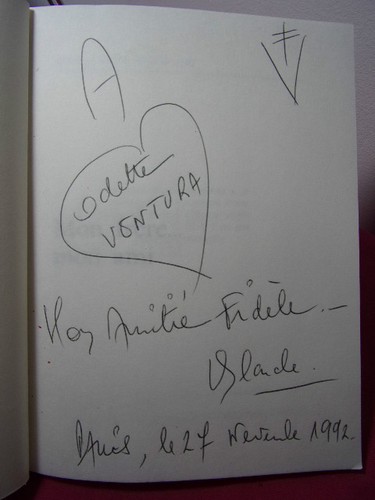 A
Odette
VENTURA
Mon Amitié Fidèle.
Paris, le 27 Novembre 1992.